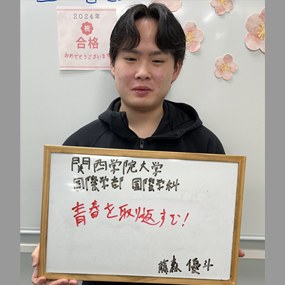 2024年
祝
合格
おめでとうございます
関西学院大学
国際学部 国際学科
青春を取り返すで!
藤森 優斗